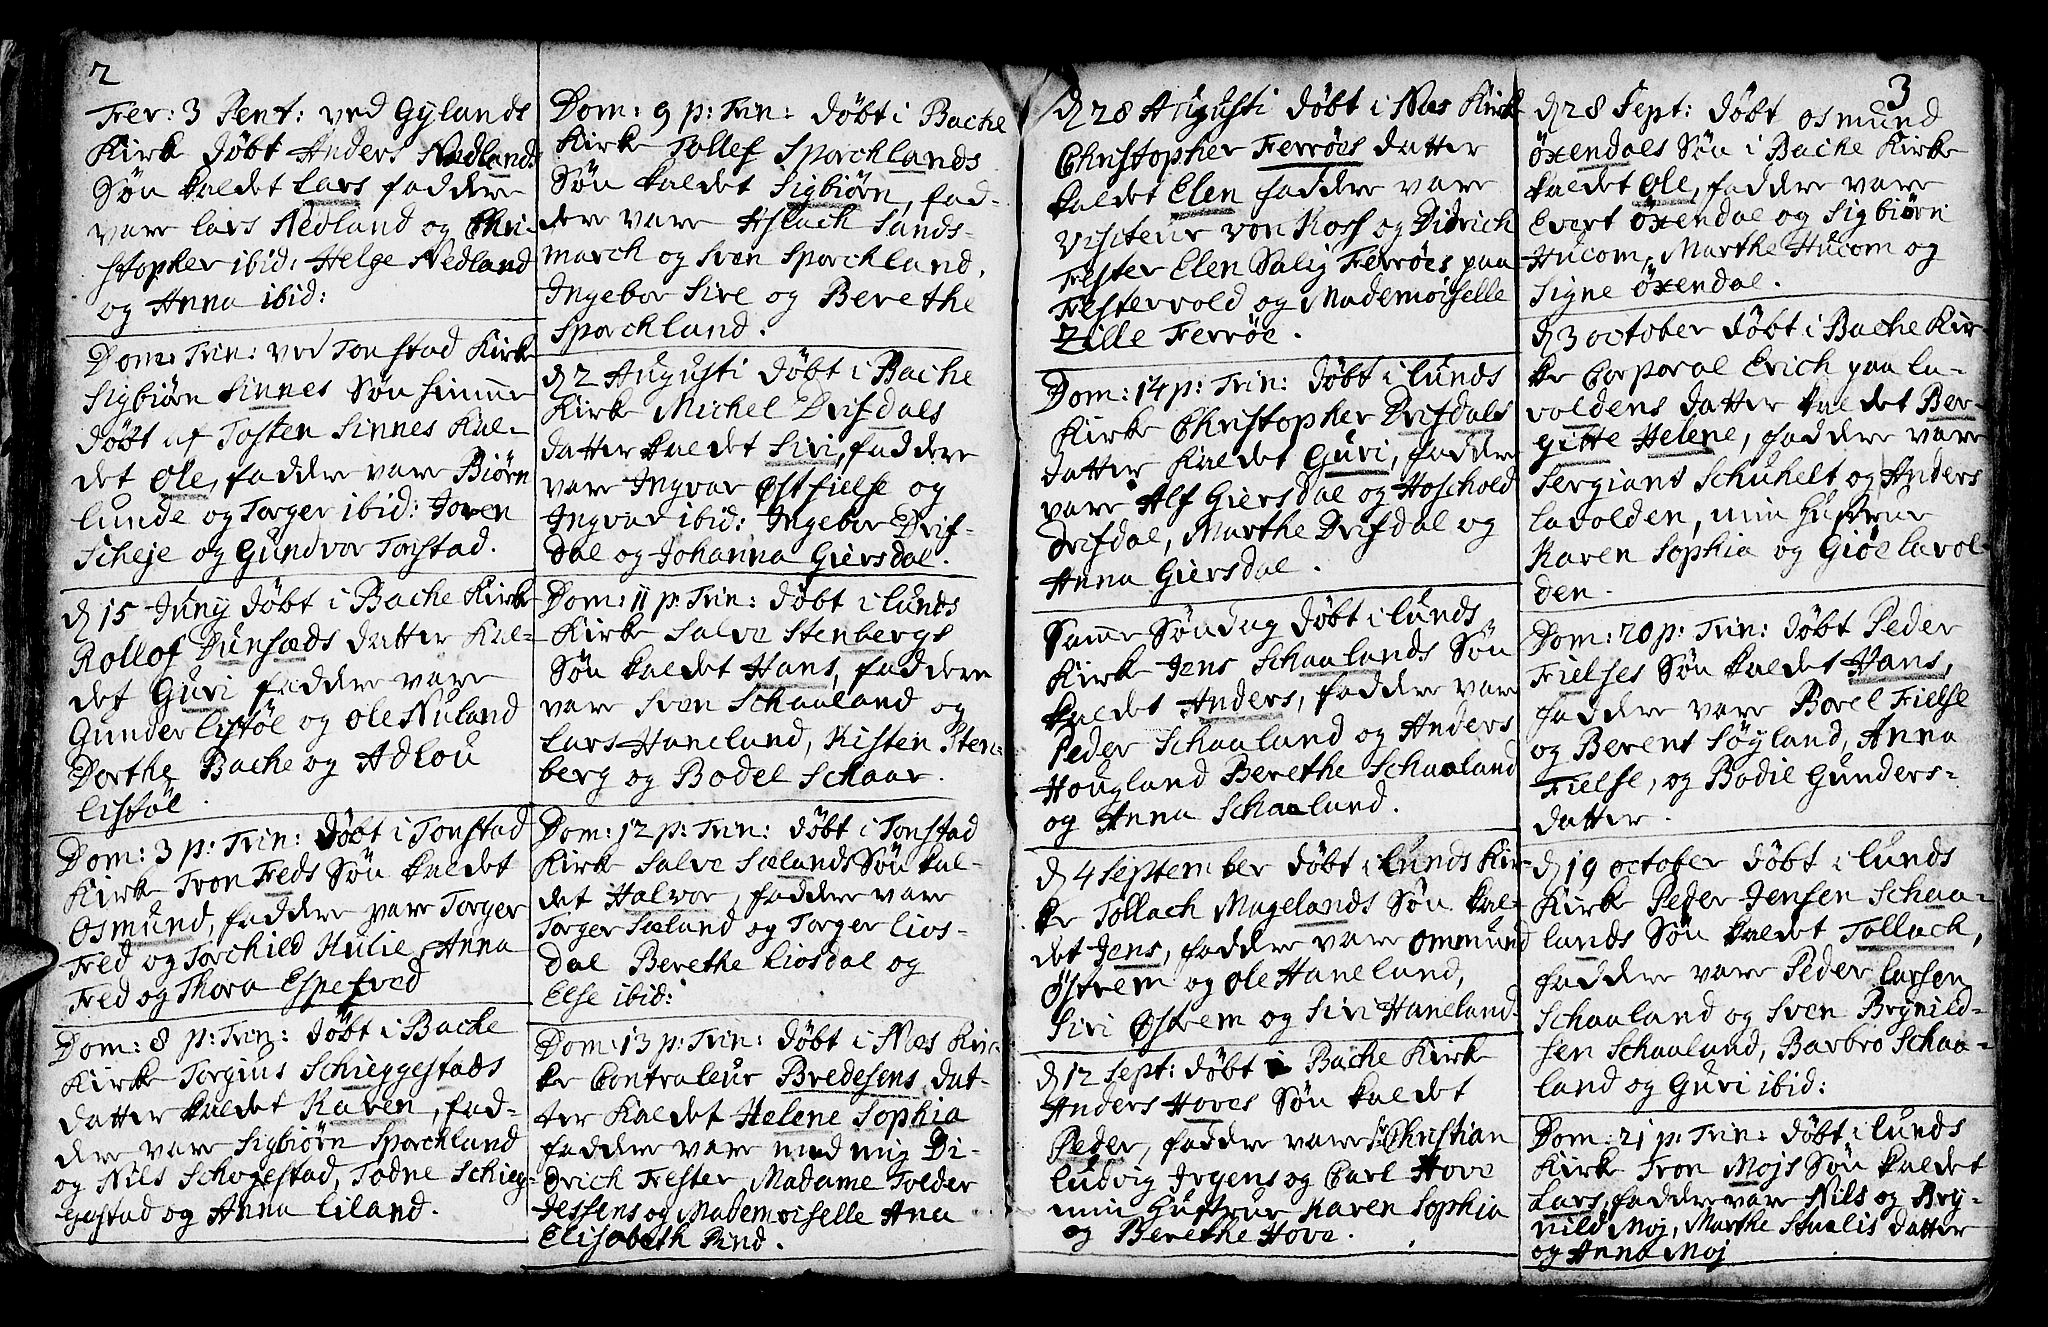 2
Fer: 3 Pent: ved Gylands
Kirke døbt Anders Nedlands
Søn kaldet Lars faddere
vare Lars Nedland og Chri-
stopher ibid: Helge Nedland
og Anna ibid:
Dom: Trin: ved Tonstad Kirke
Sigbiørn Sinnes Søn
døbt af Tosten Sinnes Kal-
det Ole, faddere vare Biørn
Lunde og Torger ibid: Joren
Scheje og Gundvor Tonstad.
d 15 Juny døbt i Bache Kirke
Rollof Dunsæds datter Kal-
det Guri faddere vare
Gunder Listøl og Ole Nuland
Dorthe Bache og Adlou
Listøl.
Dom: 3 p: Trin: døbt i Tonstad
Kirke Tron Feds Søn kaldet
Osmund, faddere vare Torger
Fred og Torchild Kulie, Anna
Fred og Thora Espetved
Dom: 8 p: Trin: døbt i Bache
Kirke Torgius Schieggestads
datter kaldet Karen, fad-
dere vare Sigbiørn Sporchland
og Nils Schogestad, Todne Schieg-
gestad og Anna Liland.
Dom: 9 p: Trin: døbt i Bache
Kirke Tollef Sporchlands
Søn kaldet Sigbiørn, fad-
dere vare Aslach Sands-
march og Sven Sporchland,
Ingebor Sire og Berethe
Sporchland.
d 2 Augusti døbt i Bache
Kirke Michel Drifdals
datter kaldet Siri, faddere
vare Ingvar Østfielse og
Ingvar ibid: Ingebor Drif-
dal og Johanna Giersdal.
Dom: 11 p: Trin: døbt i Lunds
Kirke Salve Stenbergs
Søn kaldet Hans, faddere
vare Sven Schaaland og
Lars Haneland, Kisten Sten-
berg og Bodel Schaar.
Dom: 12 p: Trin: døbt i Tonstad
Kirke Salve Sælands Søn kal-
det Halvor, faddere vare
Torger Sæland og Torger Lios-
dal Berethe Liosdal og
Else ibid:
Dom: 13 p: Trin: døbt i Næs Kir-
ke Contraleur Bredesens dat-
ter Kaldet Helene Sophia
faddere vare med mig Di-
drich Fester Madame Tolder
Jessens og Mademoiselle Ana
Elisabeth Pind.
d 28 Augusti døbt i Næs Kirke
Christopher Ferrøes datter
kaldet Elen faddere vare
Visiteur von Koss og Didrich
Fester Elen Salig Ferrøes paa
Festervold og Mademoiselle
Zille Ferrøe.
Dom: 14 p: Trin: døbt i Lunds
Kirke Christopher Drifdals
datter Kaldet Guri, faddere
vare Alf Giersdal og Hoschold
Drifdal, Marthe Drifdal og
Anna Giersdal.
Samme Søndag døbt i Lunds
Kirke Jens Schaalands Søn
kaldet Anders, faddere vare
Peder Schaaland og Anders
Hougland Berethe Schaaland
og Anna Schaaland.
d 4 September døbt i Lunds Kir-
ke Tollach Magelands Søn kal-
det Jens, faddere vare Ommund
Østrem og Ole Haneland,
Siri Østrem og Siri Haneland.
d 12 Sept: døbt i Bache Kirke
Anders Hoves Søn kaldet
Peder, faddere vare Sr Christian
Ludvig Irgens og Carl Hove
min Hustrue Karen Sophia
og Berethe Hove.
3
d 28 Sept: døbt Osmund
Øxendals Søn i Bache Kirke
kaldet Ole, faddere vare
Evert Øxendal og Sigbiørn
Hucom, Marthe Hucom og
Signe Øxendal.
d 3 October døbt i Bache Kir-
ke Corporal Erich paa La-
voldens datter kaldet Ber-
gitte Helene, faddere vare
Sergiant Schuhelt og Anders
Lavolden, min Hustrue
Karen Sophia og Giøe Lavol-
den.
Dom: 20 p: Trin: døbt Peder
Fielses Søn kaldet Hans,
faddere vare Borel Fielse
og Berent Søyland, Anna
Fielse, og Bodil Gunders-
datter.
d 19 October døbt i Lunds
Kirke Peder Jensen Schaa-
lands Søn kaldet Tollach,
faddere vare Peder Larsen
Schaaland og Sven Brynild-
sen Schaaland, Barbro Schaa-
land og Guri ibid:
Dom: 21 p: Trin: døbt i Lunds
Kirke Tron Mojs Søn kaldet
Lars, faddere vare Nils og Bry-
nild Moj, Marthe datter
og Anna Moj